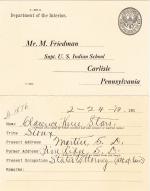 Department of the Interior.
Mr. M. Friedman
Supt. U. S. Indian School
Carlisle
Pennsylvania
2-24-10, 191
Name, Clarence Three Stars
Tribe Sioux
Present Address Martin S. D.
Former Address Pine Ridge S. D.
Present Occupation States Attorney